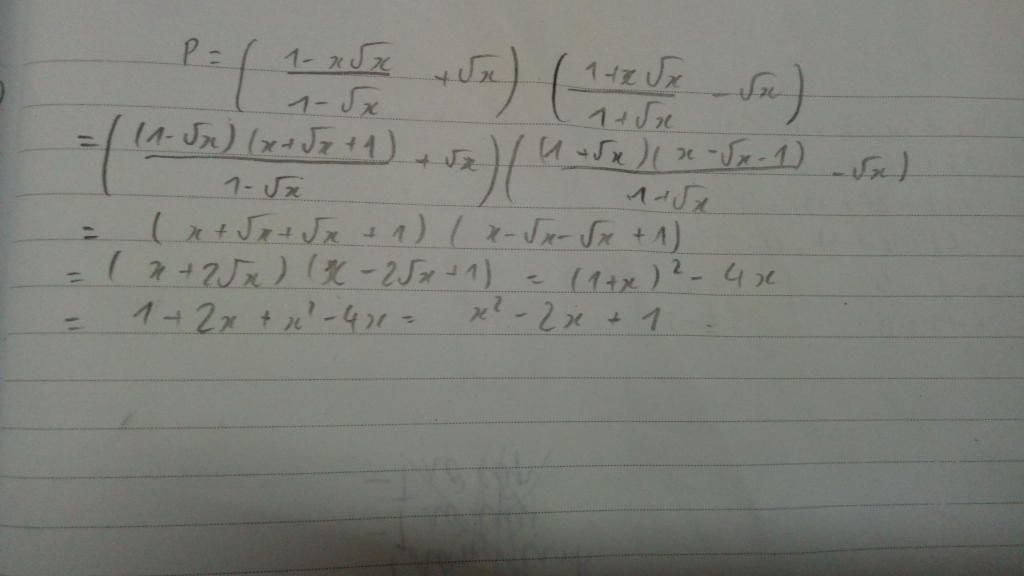 P = ( (1 - x√x)/(1 - √x) + √x ) ( (1 + x√x)/(1 + √x) - √x )
= ( (1 - √x)(x + √x + 1)/(1 - √x) + √x ) ( (1 + √x)(x - √x - 1)/(1 + √x) - √x )
= ( x + √x + √x + 1 ) ( x - √x - √x + 1 )
= ( x + 2√x ) ( x - 2√x + 1 ) = (1 + x)² - 4x
= 1 + 2x + x² - 4x = x² - 2x + 1